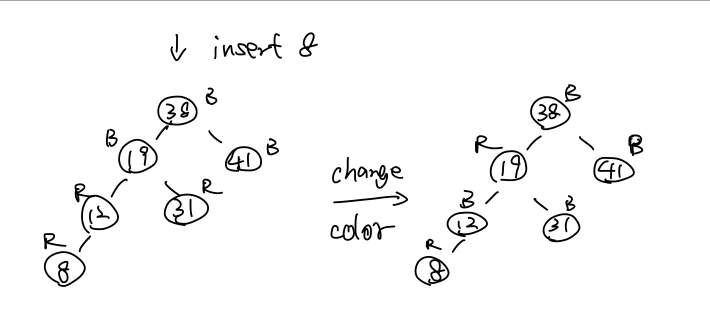 ↓ insert 8
38 B
B 19
41 B
R 12
31 R
R 8
change
color
38 B
R 19
41 B
B 12
31 B
R 8